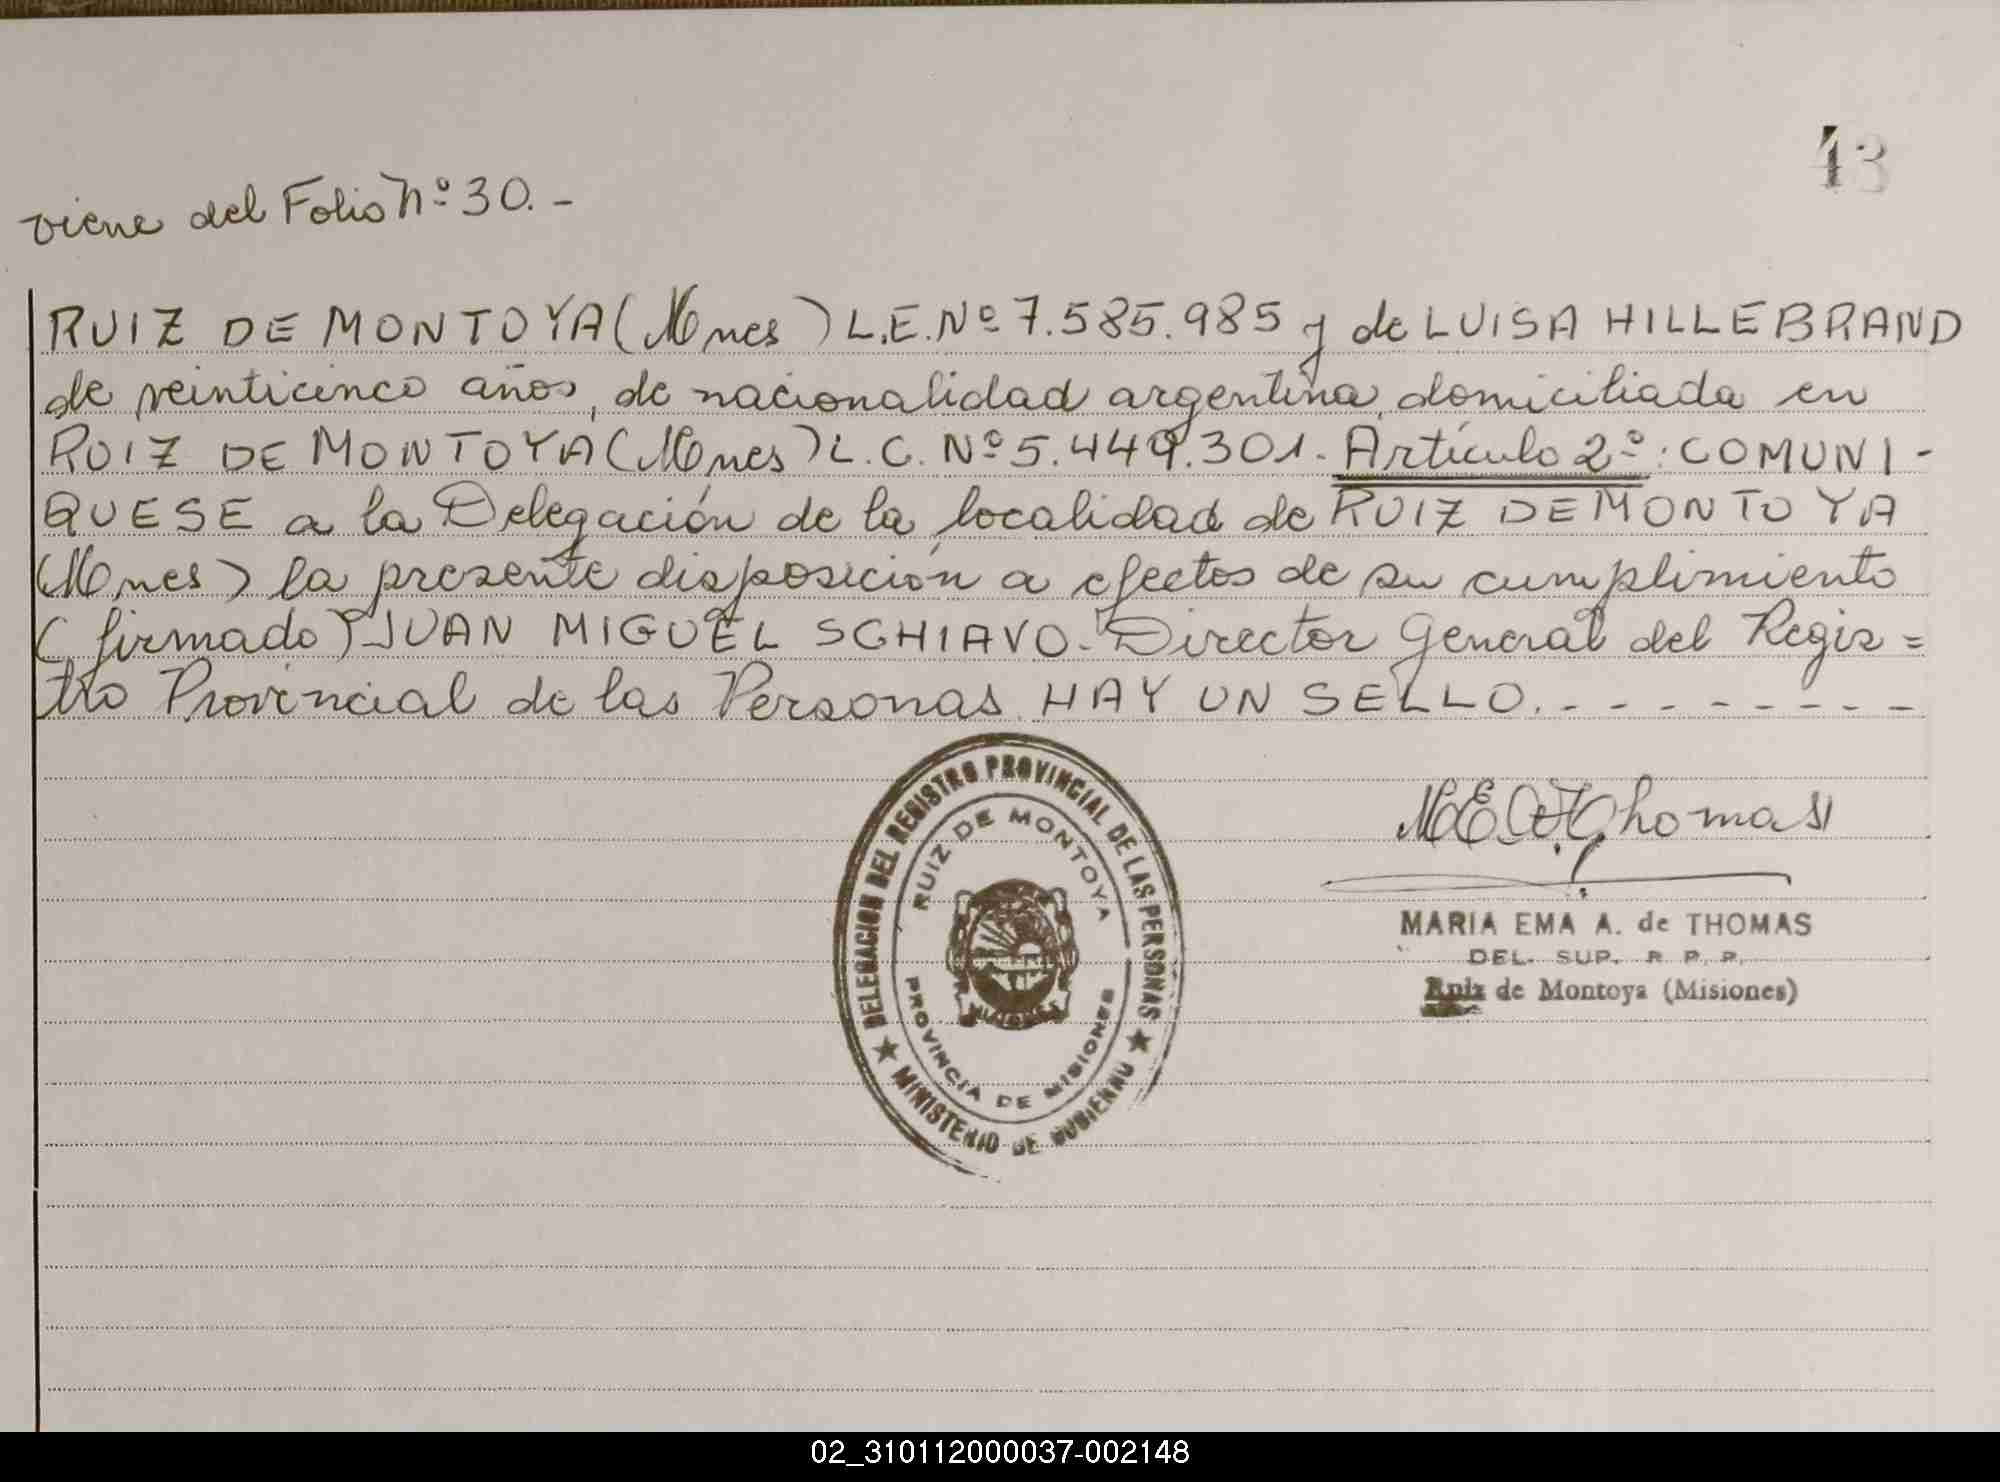 43
viene del Folio Nº 30. -
RUIZ DE MONTOYA (Mnes) L.E. Nº 7.585.985 y de LUISA HILLEBRAND
de veinticinco años, de nacionalidad argentina, domiciliada en
RUIZ DE MONTOYA (Mnes) L.C. Nº 5.449.301. Artículo 2º: COMUNI-
QUESE a la Delegación de la localidad de RUIZ DE MONTOYA
(Mnes) la presente disposición a efectos de su cumplimiento
(firmado) JUAN MIGUEL SCHIAVO. Director General del Regis=
tro Provincial de las Personas. HAY UN SELLO. - - - - - - - - -
DELEGACION DEL REGISTRO PROVINCIAL DE LAS PERSONAS
RUIZ DE MONTOYA
MISIONES
PROVINCIA DE MISIONES
★ MINISTERIO DE GOBIERNO ★
Thomas
MARIA EMA A. de THOMAS
DEL. SUP. R. P. P.
Ruiz de Montoya (Misiones)
02_310112000037-002148